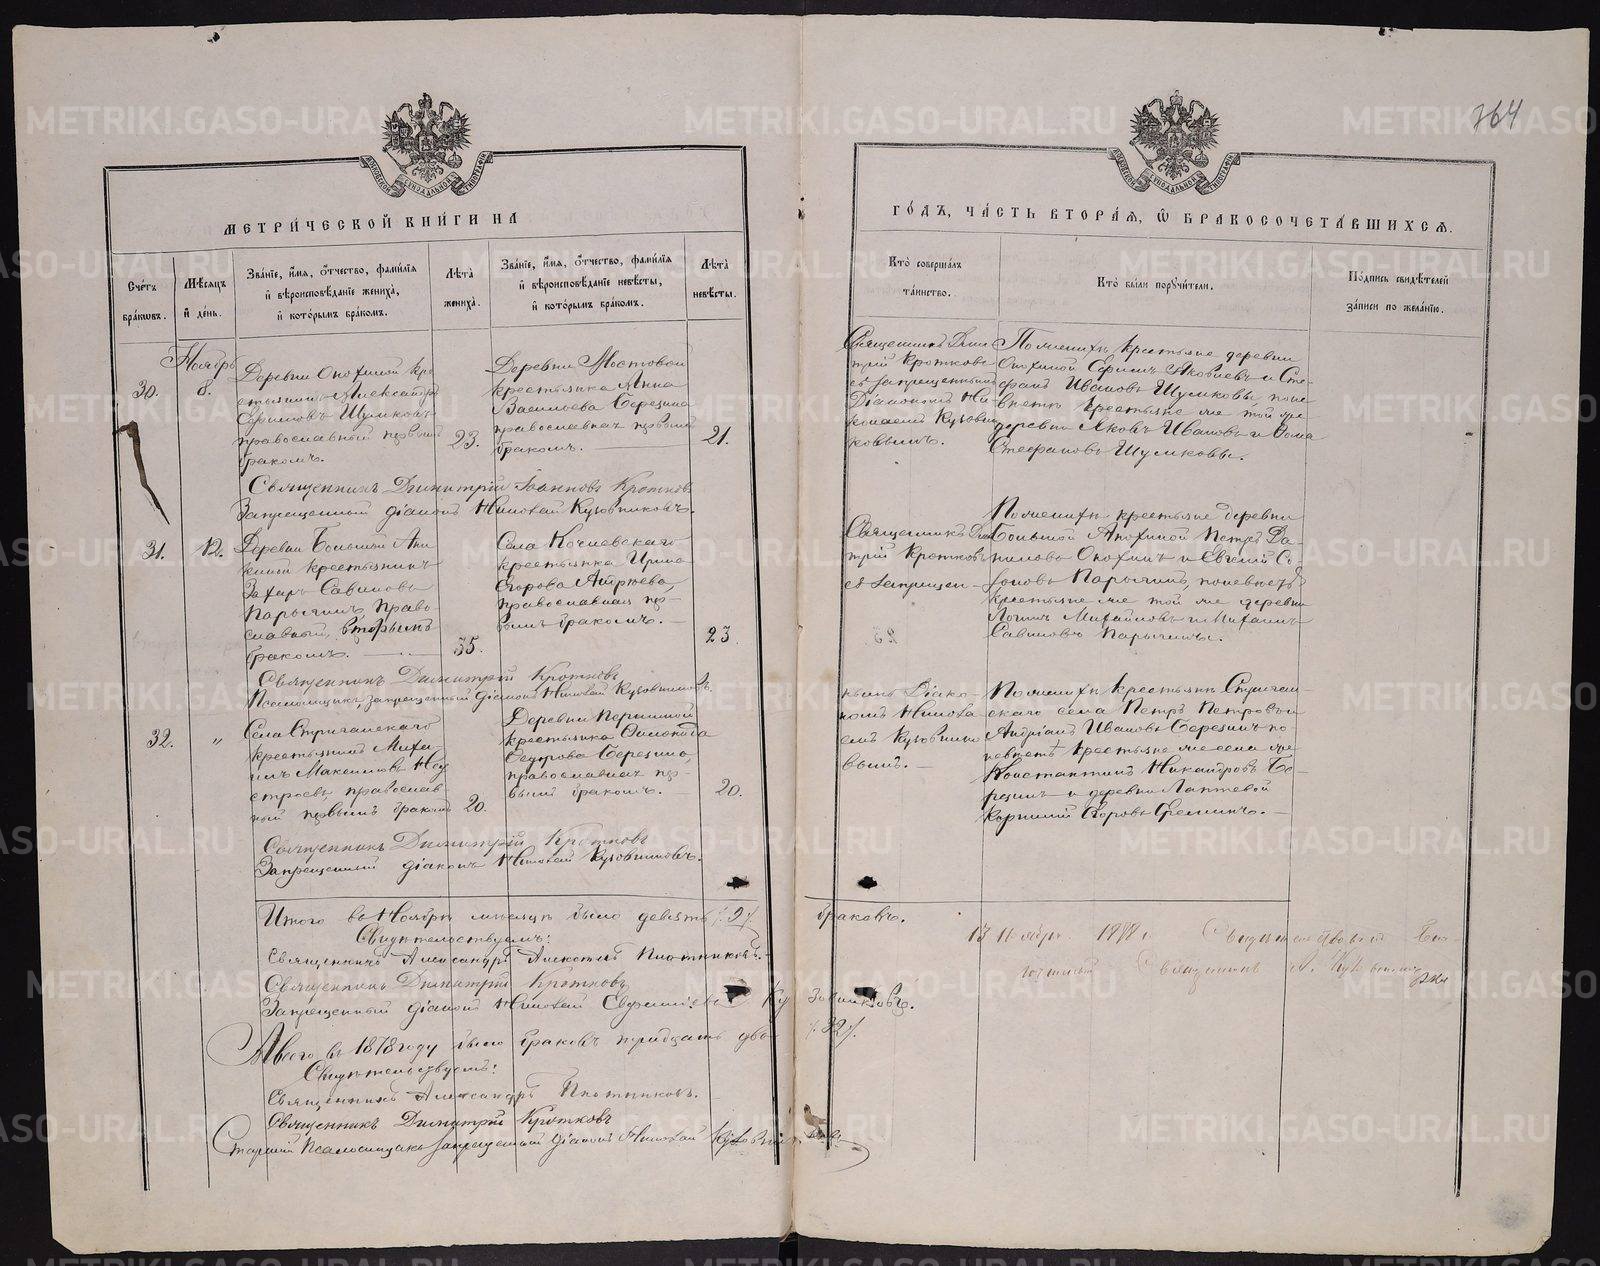 764
МЕТРИ́ЧЕСКОЙ КНИ́ГИ НА
ГО́ДЪ, ЧА́СТЬ ВТОРА́Ѧ, Ѽ БРАКОСОЧЕТА́ВШИХСѦ.
Сче́тъ бра́кωвъ.
Мѣ́сѧцъ и҆ де́нь.
Зва́нїе, и҆́мѧ, ѻ҆́тчество, фами́лїѧ
и҆ вѣроисповѣ́данїе жениха̀,
и҆ кото́рымъ бра́комъ.
Лѣ́та жениха̀.
Зва́нїе, и҆́мѧ, ѻ҆́тчество, фами́лїѧ
и҆ вѣроисповѣ́данїе невѣ́сты,
и҆ кото́рымъ бра́комъ.
Лѣ́та невѣ́сты.
Кто̀ соверша́лъ
та́инство.
Кто̀ бы́ли порꙋчи́тели.
По́дпись свидѣ́телей
за́писи по жела́нїю.
30.
Ноябрь
8.
Деревни Опохиной кре
стьянинъ Александръ
Ефимовъ Шумковъ
православный первымъ
бракомъ.
23.
Деревни Мостовой
крестьянка Анна
Васильева Березина
православная первымъ
бракомъ.
21.
Священникъ Дими
трій Кротковъ
съ запрещеннымъ
Діакономъ Ни
колаемъ Кузовни
ковымъ.
По женихѣ крестьяне деревни
Опохиной Ефимъ Яковлевъ и Сте
фанъ Ивановъ Шумковы, по не
вѣстѣ крестьяне же той же
деревни Яковъ Ивановъ и Фома
Стефановъ Шумковы.
Священникъ Димитрій Іоанновъ Кротковъ
Запрещенный діаконъ Николай Кузовниковъ.
31.
12.
Деревни Большой Апо
хиной крестьянинъ
Захаръ Савиновъ
Парычинъ право-
славный, вторымъ
бракомъ.
35.
Села Кочневскаго
крестьянка Ирина
Егорова
православная пер-
вымъ бракомъ.
23
Священникъ Дими
трій Кротковъ
съ запрещен-
нымъ Діако-
номъ Никола
емъ Кузовнико
вымъ.
По женихѣ крестьяне деревни
Большой Апохиной Петръ Да-
ниловъ Опохинъ и Евгеній Со-
фоновъ Парычинъ, по невѣстѣ
крестьяне же той же деревни
Логинъ Михайловъ и Михаилъ
Савиновъ Парычины.
Священникъ Димитрій Кротковъ
Псаломщикъ, запрещенный діаконъ Николай Кузовниковъ.
32.
"
Села Стриганскаго
крестьянинъ Миха
илъ Максимовъ Неу
строевъ православ
ный первымъ бракомъ
20.
Деревни Першиной
крестьянка
Федорова Березина,
православная пер-
вымъ бракомъ.
20.
По женихѣ крестьяне Стриган-
скаго села Петръ Петровъ и
Андріанъ Ивановъ Березины по
невѣстѣ крестьяне же села же
Константинъ Никандровъ Бе-
резинъ и деревни Лаптевой
Корнилій Егоровъ Ереминъ.
Священникъ Димитрій Кротковъ
Запрещенный діаконъ Николай Кузовниковъ.
Итого въ Ноябрѣ мѣсяцѣ было девять /.9/. браковъ.
Свидѣтельствуемъ:
Священникъ Александръ Алексѣевъ Плотниковъ.
Священникъ Димитрій Кротковъ
Запрещенный діаконъ Николай Евфиміевъ Кузовниковъ.
А всего въ 1878 году было браковъ тридцать два /.32/.
Свидѣтельствуемъ:
Священникъ Александръ Плотниковъ.
Священникъ Димитрій Кротковъ
Старшій Псаломщикъ запрещенный діаконъ Николай Кузовниковъ.
METRIKI.GASO-URAL.RU